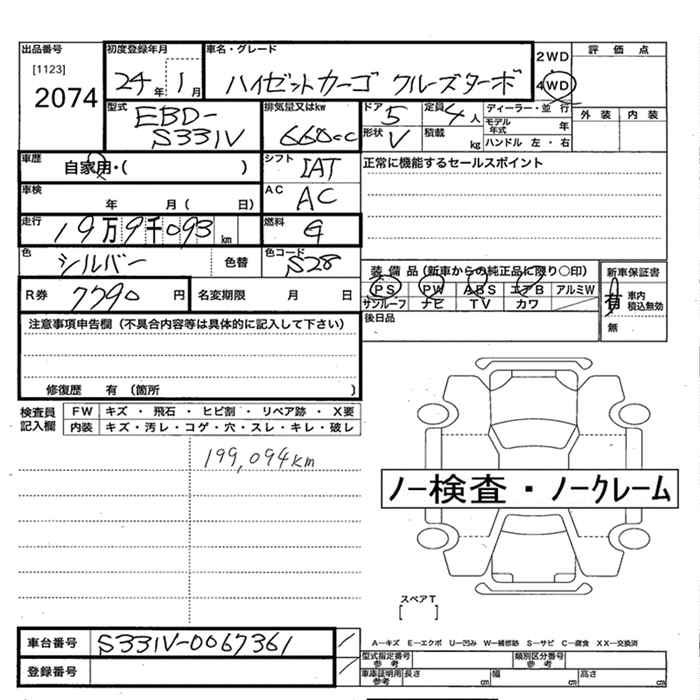 出品番号 初度登録年月 車名・グレード 2WD 評価点
[1123]
2074 24年1月 ハイゼットカーゴ クルーズターボ 4WD
型式 排気量又はkw ドア 定員 ディーラー・並行 外装 内装
EBD-S331V 660cc 5 4人 モデル年式 年
形状 V 積載 kg ハンドル 左・右
車歴 自家用・( ) シフト IAT 正常に機能するセールスポイント
車検 年 月( 日) AC AC
走行 19万9千093km 燃料 G
色 シルバー 色替 色コード S28 装備品(新車からの純正品に限り○印) 新車保証書
R券 7790円 名変期限 月 日 PS PW ABS エアB アルミW 有 車内積込無効
サンルーフ ナビ TV カワ 無
注意事項申告欄(不具合内容等は具体的に記入して下さい) 後日品
修復歴 有(箇所 )
検査員記入欄 FW キズ・飛石・ヒビ割・リペア跡・X要
内装 キズ・汚レ・コゲ・穴・スレ・キレ・破レ
199,094km
ノー検査・ノークレーム
スペアT
[ ]
車台番号 S331V-0067361 A−キズ E−エクボ U−凹み W−補修跡 S−サビ C−腐食 XX−交換済
登録番号 型式指定番号 参考 類別区分番号 参考
車庫証明用 参考 長さ cm 幅 cm 高さ cm